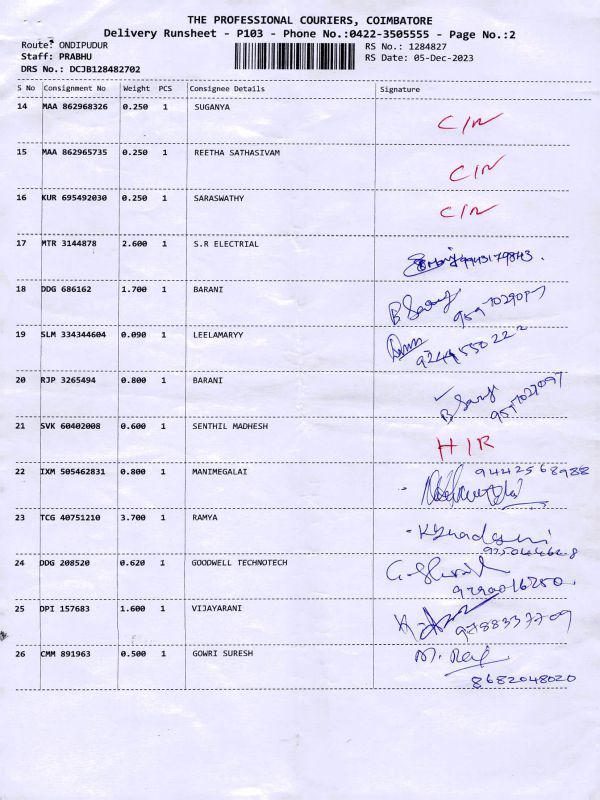 THE PROFESSIONAL COURIERS, COIMBATORE
Delivery Runsheet - P103 - Phone No.:0422-3505555 - Page No.:2
Route: ONDIPUDUR RS No.: 1284827
Staff: PRABHU RS Date: 05-Dec-2023
DRS No.: DCJB128482702
S No Consignment No Weight PCS Consignee Details Signature
14 MAA 862968326 0.250 1 SUGANYA C/N
15 MAA 862965735 0.250 1 REETHA SATHASIVAM C/N
16 KUR 695492030 0.250 1 SARASWATHY C/N
17 MTR 3144878 2.600 1 S.R ELECTRIAL
18 DDG 686162 1.700 1 BARANI B
19 SLM 334344604 0.090 1 LEELAMARYY
20 RJP 3265494 0.800 1 BARANI B
21 SVK 60402008 0.600 1 SENTHIL MADHESH H/R
22 IXM 505462831 0.800 1 MANIMEGALAI 9442568988
23 TCG 40751210 3.700 1 RAMYA
24 DDG 208520 0.620 1 GOODWELL TECHNOTECH
25 DPI 157683 1.600 1 VIJAYARANI 9788337709
26 CMM 891963 0.500 1 GOWRI SURESH M. Raj
8682048020